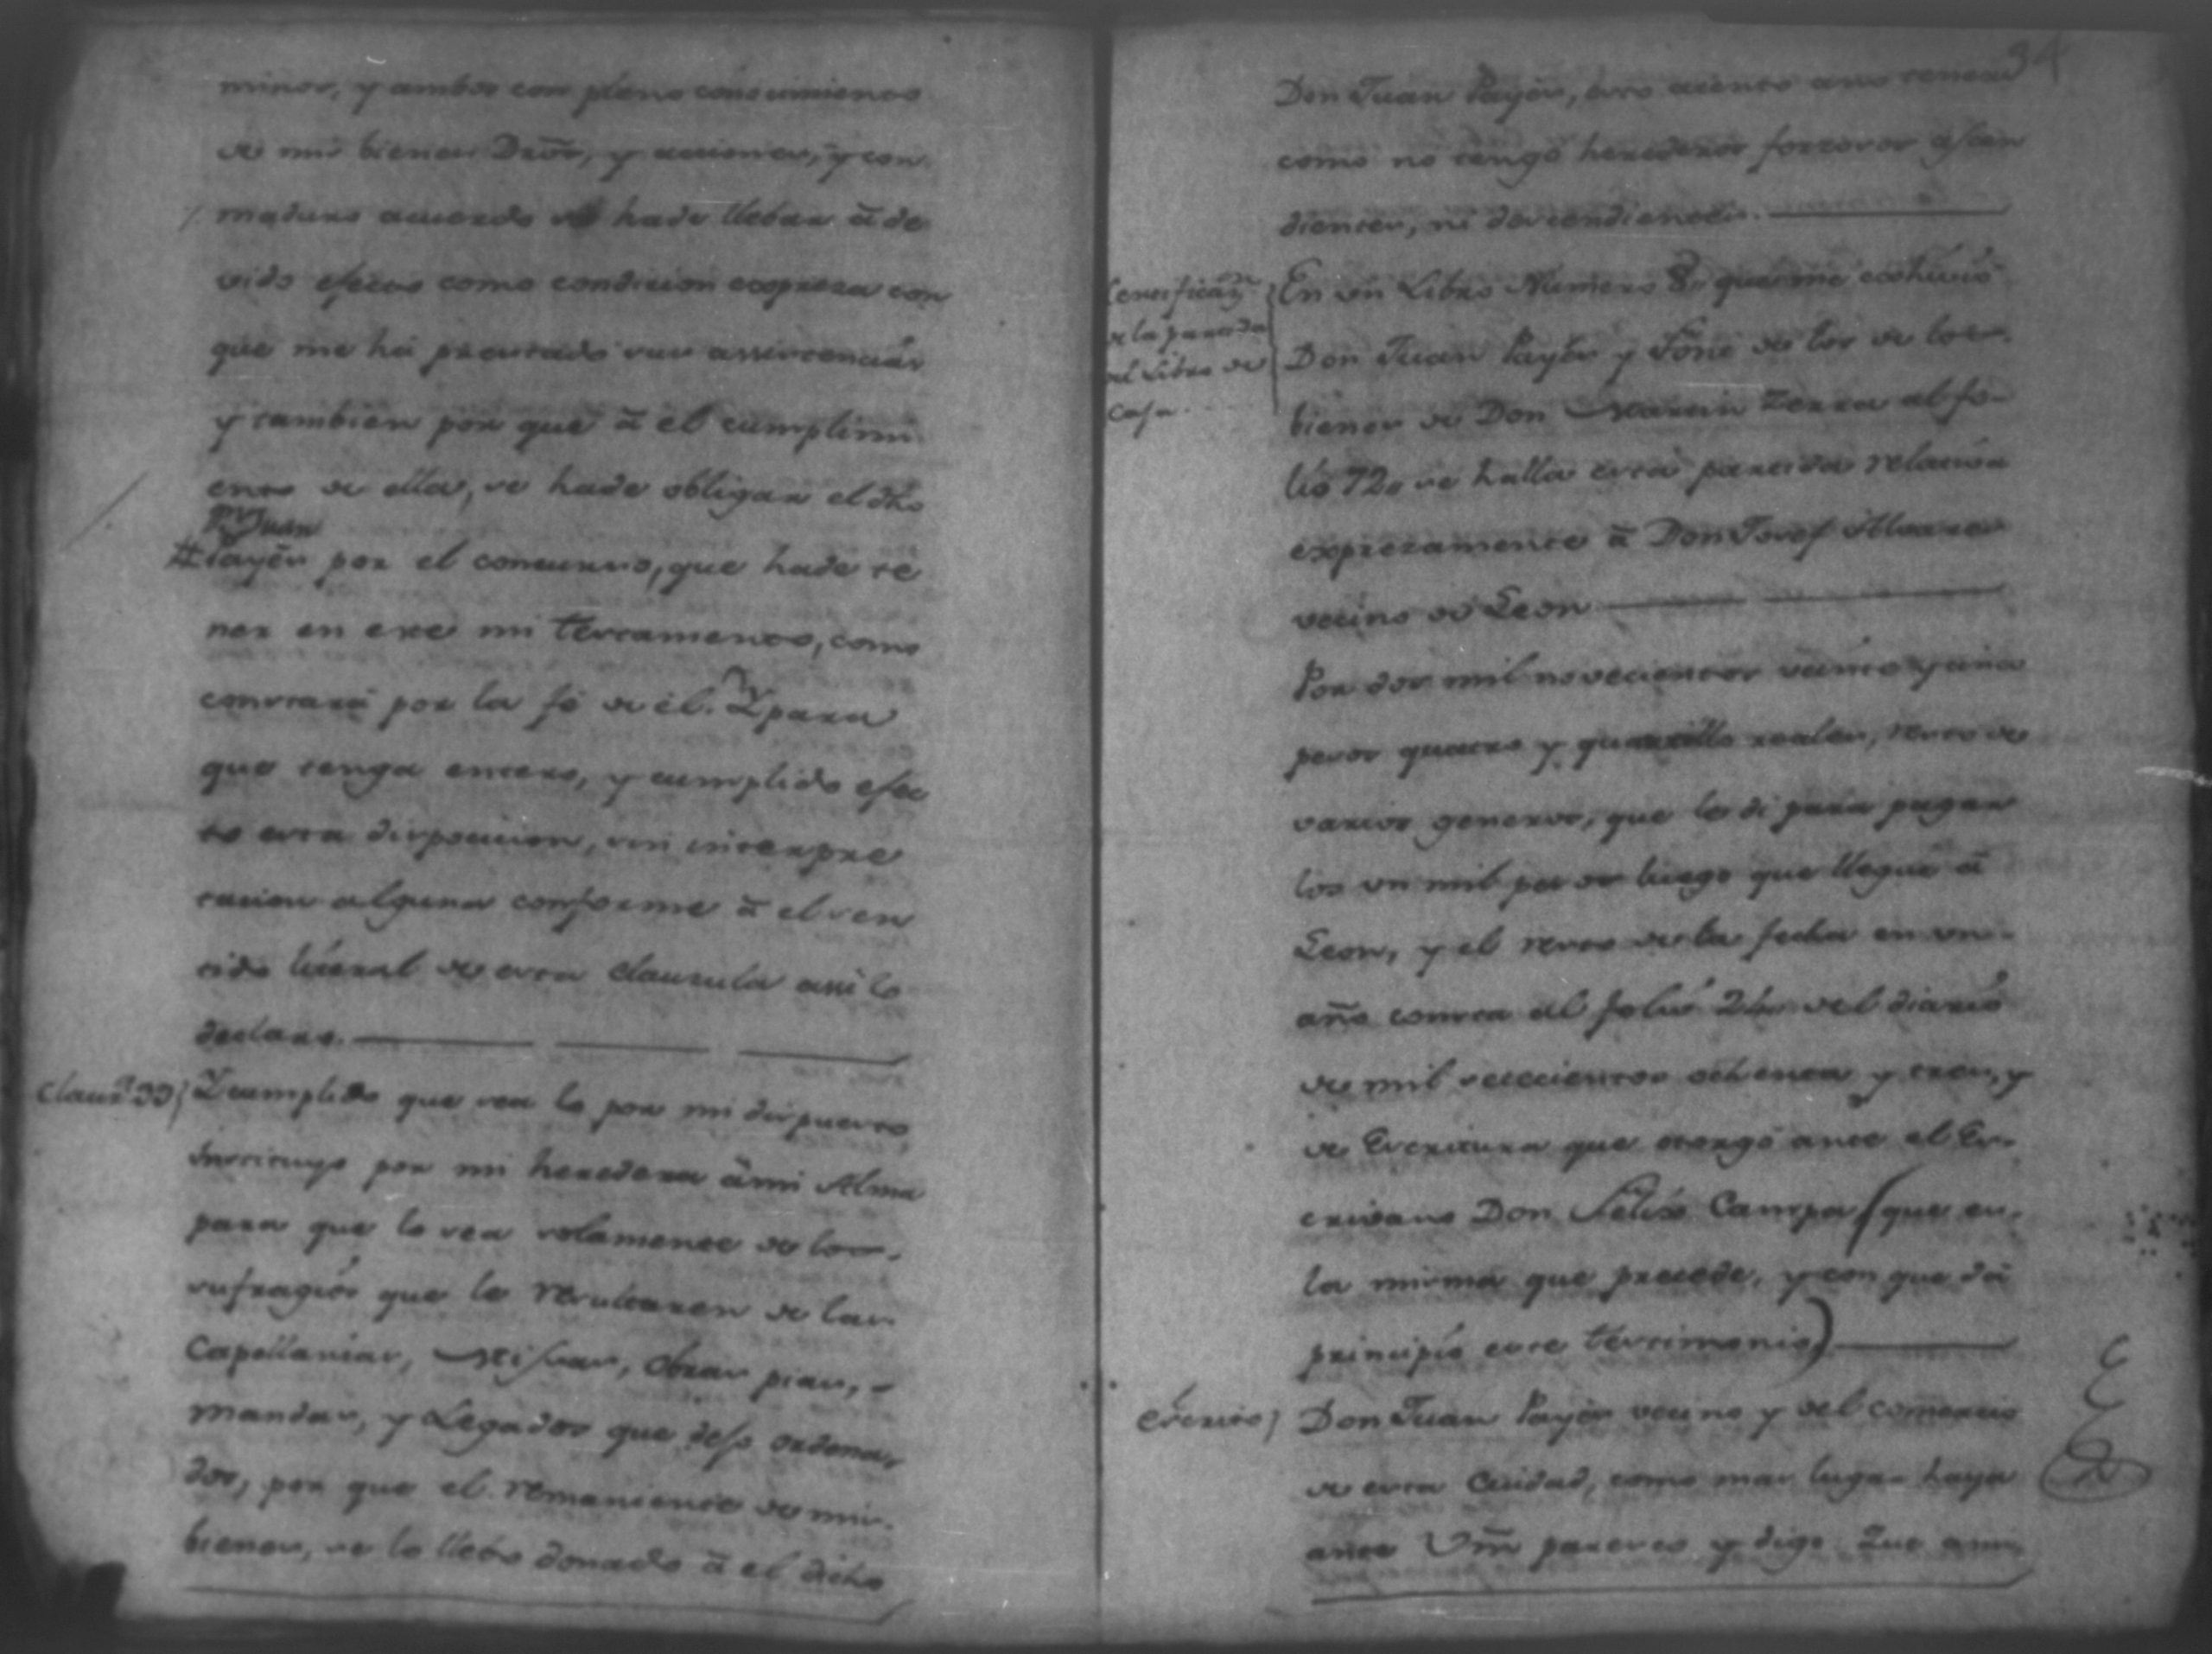 minos, y ambos con pleno conocimiento
de mis bienes Dros, y acciones, y con
maduro acuerdo se hade llebar â de
vido efecto como condicion expresa con
que me há prestado sus assistencias
y tambien por que â el cumplimi
ento de ella, se hade obligar el dho
Dn Juan
# Payèn por el concurso, que hade te
ner en este mi testamento, como
constará por la fé de èl. Y para
que tenga entero, y cumplido efec
to esta disposicion, sin interpre
tacion alguna conforme â el sen
tido literal de esta clausula assi lo
declaro.
Claus.a 33) Y cumplido que sea lo por mi dispuesto
Instituyo por mi heredera â mi Alma
para que lo sea solamente de los
sufragios que le resultaren de las
Capellanias, Missas, Obras pias,
mandas, y Legados que dejo ordena
dos, por que el remaniente de mis
bienes, se lo llebo donado â el dicho
94
Don Juan Payèn, esto atento a no tener
como no tengo herederos forzosos ascen
dientes, ni descendientes.
Certificazn
de la partida
del Libro de
Caja.
En un Libro Numero 8,, que me exhivió
Don Juan Payèn y Foné de los de los
bienes de Don Martin Zerra al fo-
lio 72,, se halla esta partida relativa
expresamente â Don Josef Alvarez
vecino de Leon
Por dos mil novecientos veinte y un
pesos quatro y quartillo reales, resto de
varios generos, que le di para pagar
los un mil pesos luego que llegue â
Leon, y el resto de la fecha en un
año consta al folio 24 del diario
de mil setecientos ochenta y tres, y
de Escritura que otorgó ante el Es-
crivano Don Felix Campa (que es
la misma que precede, y con que dá
principio este testimonio)
Escrito) Don Juan Payèn vecino y del comercio
de esta Ciudad, como mas lugar haya
ante Vm paresco y digo: Que a mi